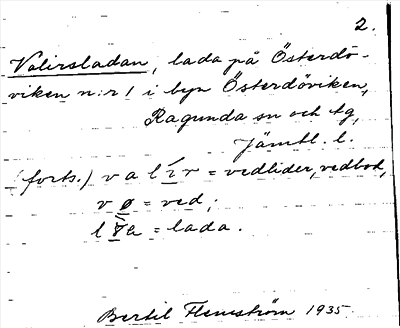 2.
Valirsladan, lada på Österdö-
viken n:r 1 i byn Österdöviken,
Ragunda sn och tg,
Jämtl. l.
(forts.) valír = vedlider, vedbod,
vø = ved;
= lada.
Bertil Flemström 1935.